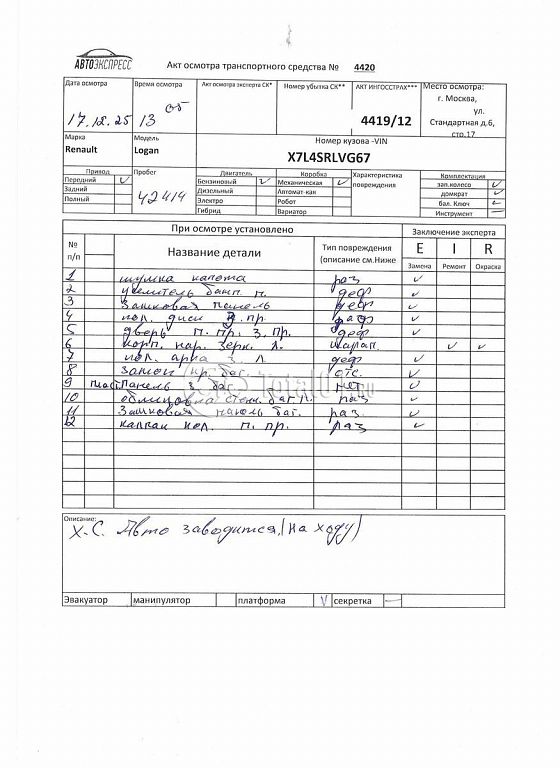 АВТОЭКСПРЕСС
Акт осмотра транспортного средства № 4420
Дата осмотра
Время осмотра
Акт осмотра эксперта СК*
Номер убытка СК**
АКТ ИНГОССТРАХ***
Место осмотра:
17.12.25
13 05
4419/12
г. Москва,
ул.
Стандартная д.6,
стр.17
Марка
Модель
Номер кузова -VIN
Renault
Logan
X7L4SRLVG67
Привод
Пробег
Двигатель
Коробка
Характеристика
повреждения
Комплектация
Передний ✓
42414
Бензиновый ✓
Механическая ✓
зап.колесо ✓
Задний
Дизельный
Автомат-кая
домкрат ✓
Полный
Электро
Робот
бал. Ключ ✓
Гибрид
Вариатор
Инструмент —
При осмотре установлено
Заключение эксперта
№ п/п
Название детали
Тип повреждения
(описание см.Ниже
E I R
Замена Ремонт Окраска
1 шумка капота раз ✓
2 усилитель бамп. п. деф ✓
3 Замковая панель деф ✓
4 кол. диск З. пр. деф ✓
5 дверь п. пр. З. пр. деф ✓
6 корп. нар. зерк. л. царап. ✓ ✓
7 кол. арка З. л. деф ✓
8 Замок кр. баг. отс. ✓
9 пласт Панель З. баг. нет ✓
10 облицовка стекл. баг. л. раз ✓
11 Замковая панель баг. раз. ✓
12 колпак кол. п. пр. раз ✓
Total01.ru
Описание:
Х.С. Авто заводится, (на ходу)
Эвакуатор манипулятор платформа V секретка —